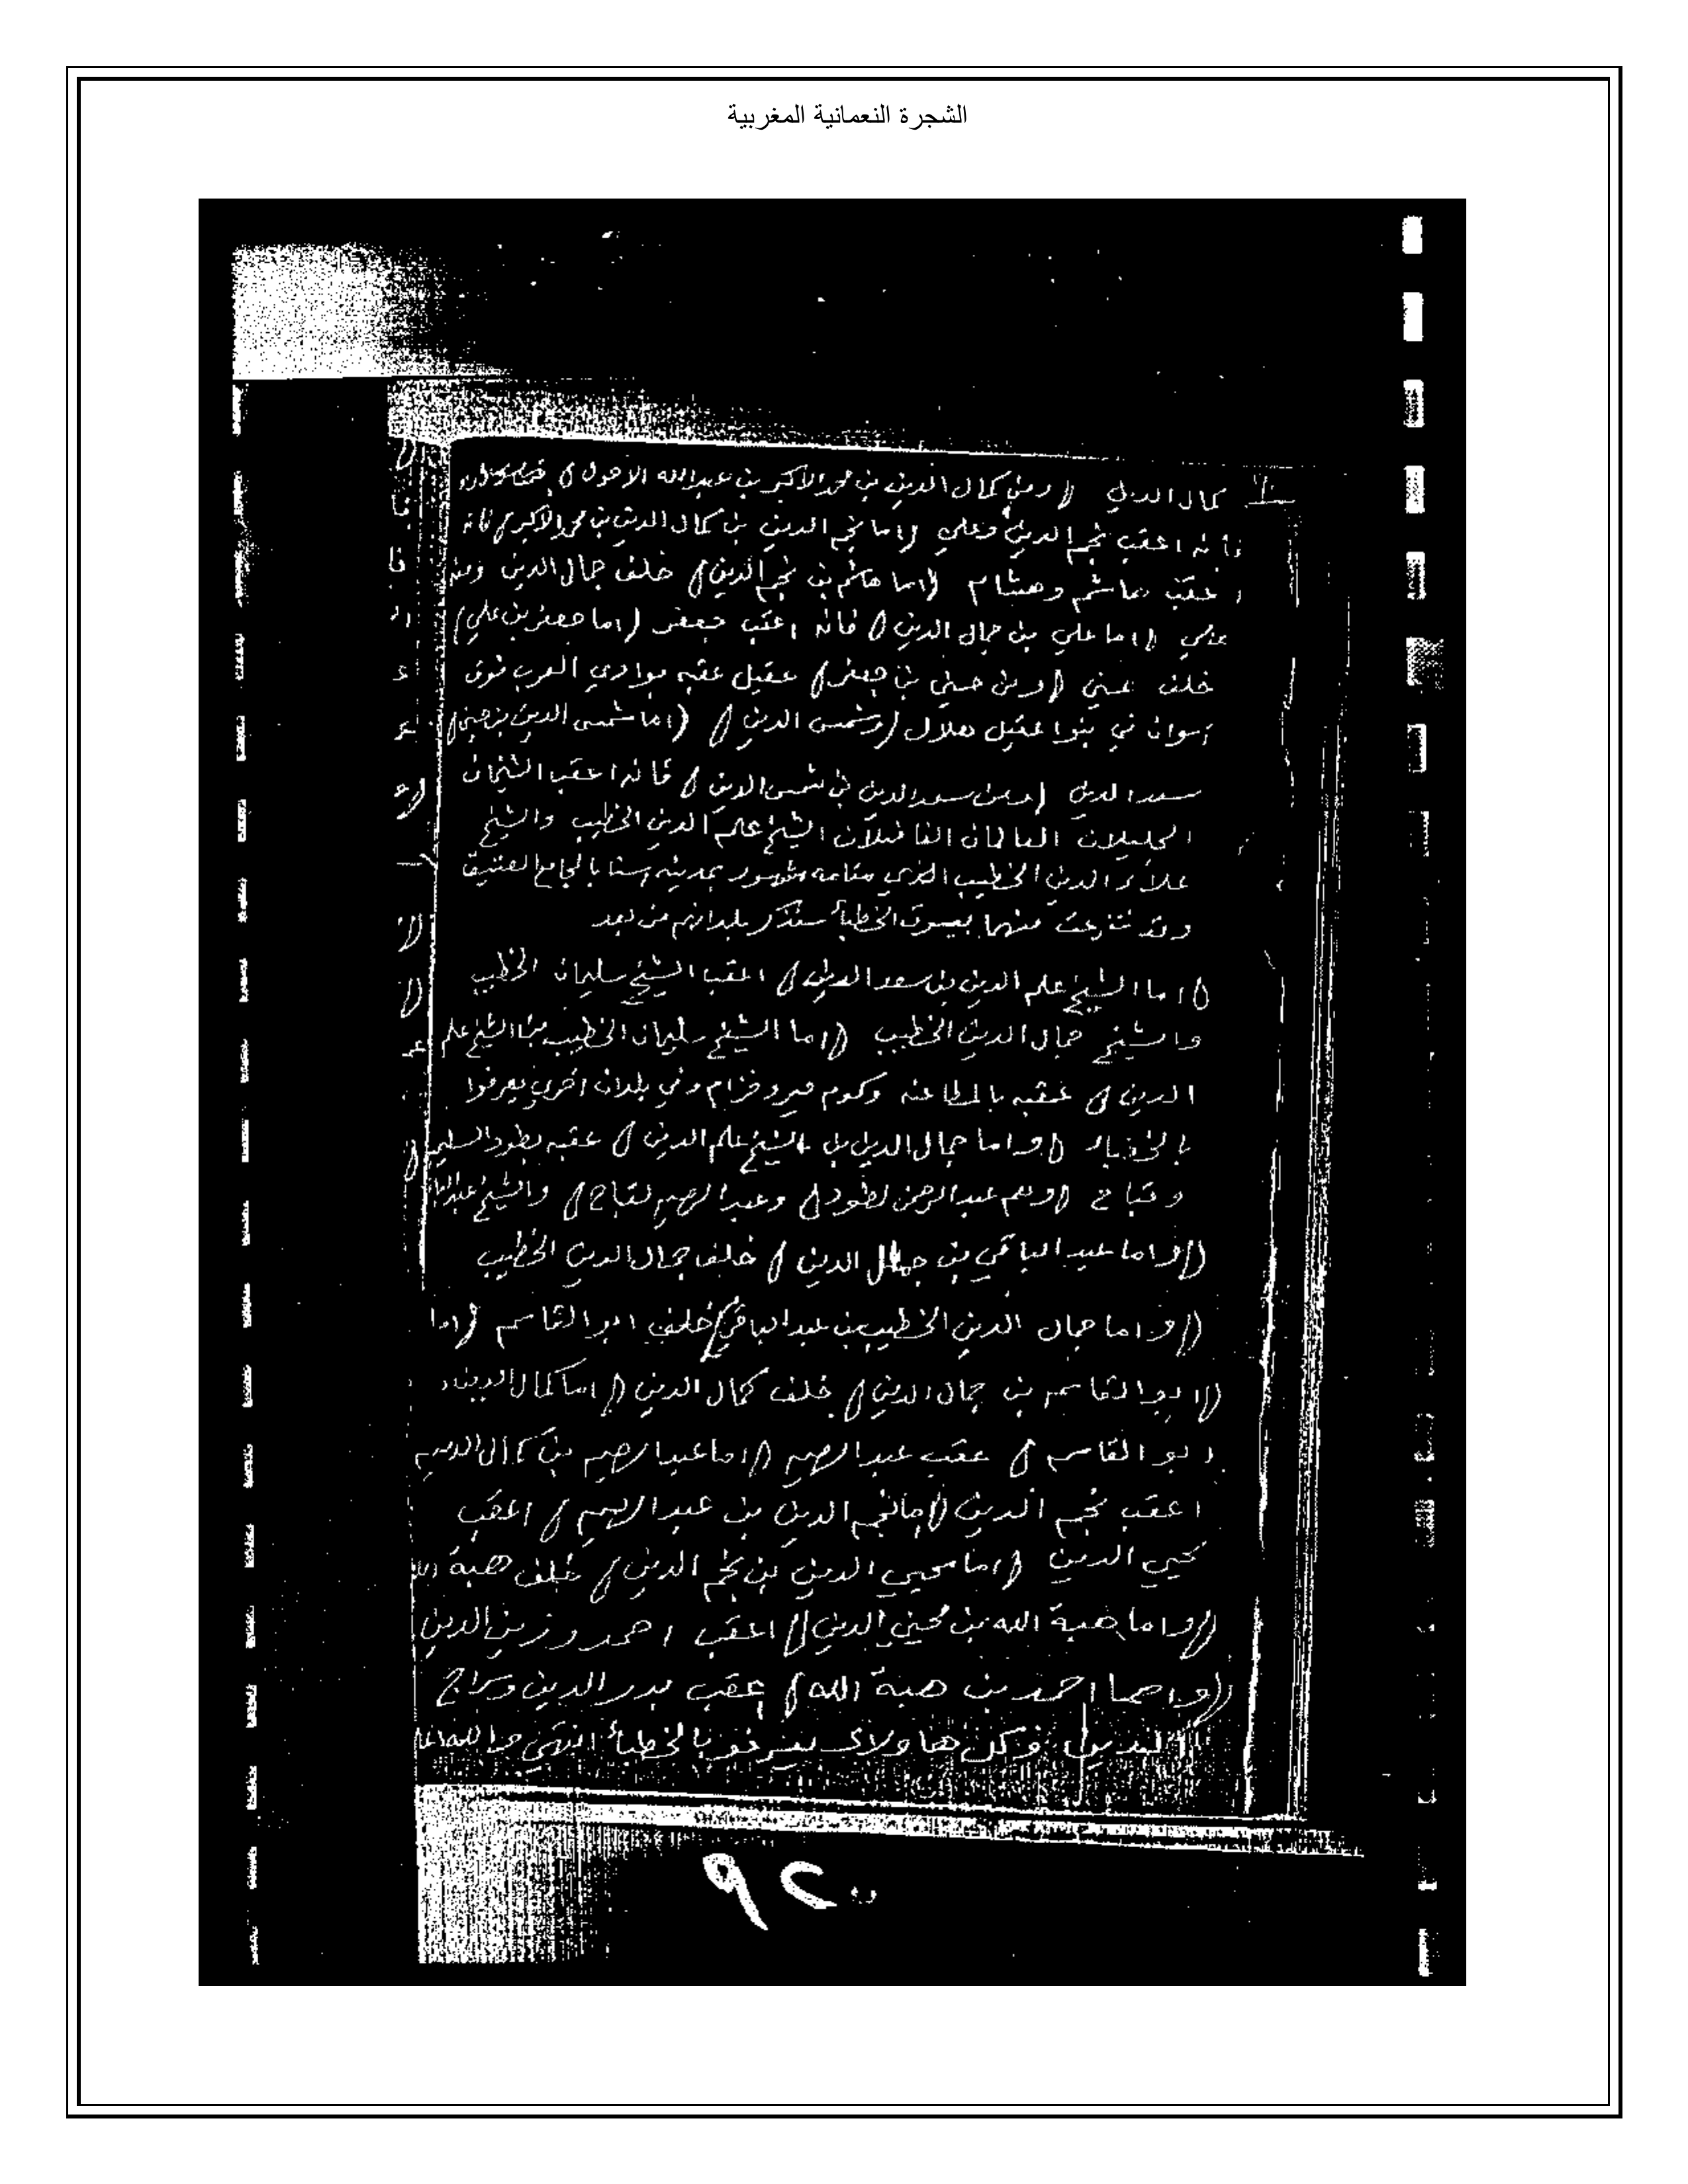 الشجرة النعمانية المغربية
كمال الدين (( ومن كمال الدين بن محمد الاكبر بن عبدالله الاحول ))
فانه اعقب نجم الدين وعلي (( اما نجم الدين بن كمال الدين بن محمد الاكبر )) فانه
اعقب هاشم وهشام (( اما هاشم بن نجم الدين )) خلف جمال الدين ومنه
علي (( اما علي بن جمال الدين )) فانه اعقب جعفر (( اما جعفر بن علي ))
خلف حسني (( ومن حسني بن جعفر )) عقيل عقبه بوادي العرب فوق
اسوان في بنوا عقيل هلال (( وشمس الدين )) (( اما شمس الدين بن حسني ))
سعد الدين (( ومن سعد الدين بن شمس الدين )) فانه اعقب الشيخان
الجليلان العالمان الفاضلان الشيخ علم الدين الخطيب والشيخ
علاء الدين الخطيب الذي مقامه مشهور بمدينه اسنا بالجامع العتيق
وقد تفرعت منهما بيوت الخطبأ سنذكر بلدانهم من بعد
(( اما الشيخ علم الدين بن سعد الدين )) اعقب الشيخ سليمان الخطيب
والشيخ جمال الدين الخطيب (( اما الشيخ سليمان الخطيب بن الشيخ علم
الدين )) عقبه بالمطاعنه وكوم مير وفزام وفي بلدان اخري يعرفوا
بالخطباء (( واما جمال الدين بن الشيخ علم الدين )) عقبه بطود السليم
وقباح (( وهم عبدالرحمن لطود )) وعبد الرحيم لقباح )) والشيخ عبدالباقي
(( واما عبد الباقي بن جمال الدين )) خلف جمال الدين الخطيب
(( واما جمال الدين الخطيب بن عبد الباقي )) خلف ابو القاسم (( اما
(( ابو القاسم بن جمال الدين )) خلف كمال الدين (( اما كمال الدين بن
ابو القاسم )) عقب عبد الرحيم (( اما عبد الرحيم بن كمال الدين
اعقب نجم الدين (( اما نجم الدين بن عبد الرحيم )) اعقب
محيي الدين (( اما محيي الدين بن نجم الدين )) خلف هبة الله
(( واما هبة الله بن محيي الدين )) اعقب احمد وزين الدين
(( واما احمد بن هبة الله )) عقب بدر الدين وسراج
الدين وكل هاولاء يعرفو بالخطبأ انتهي
٩٢